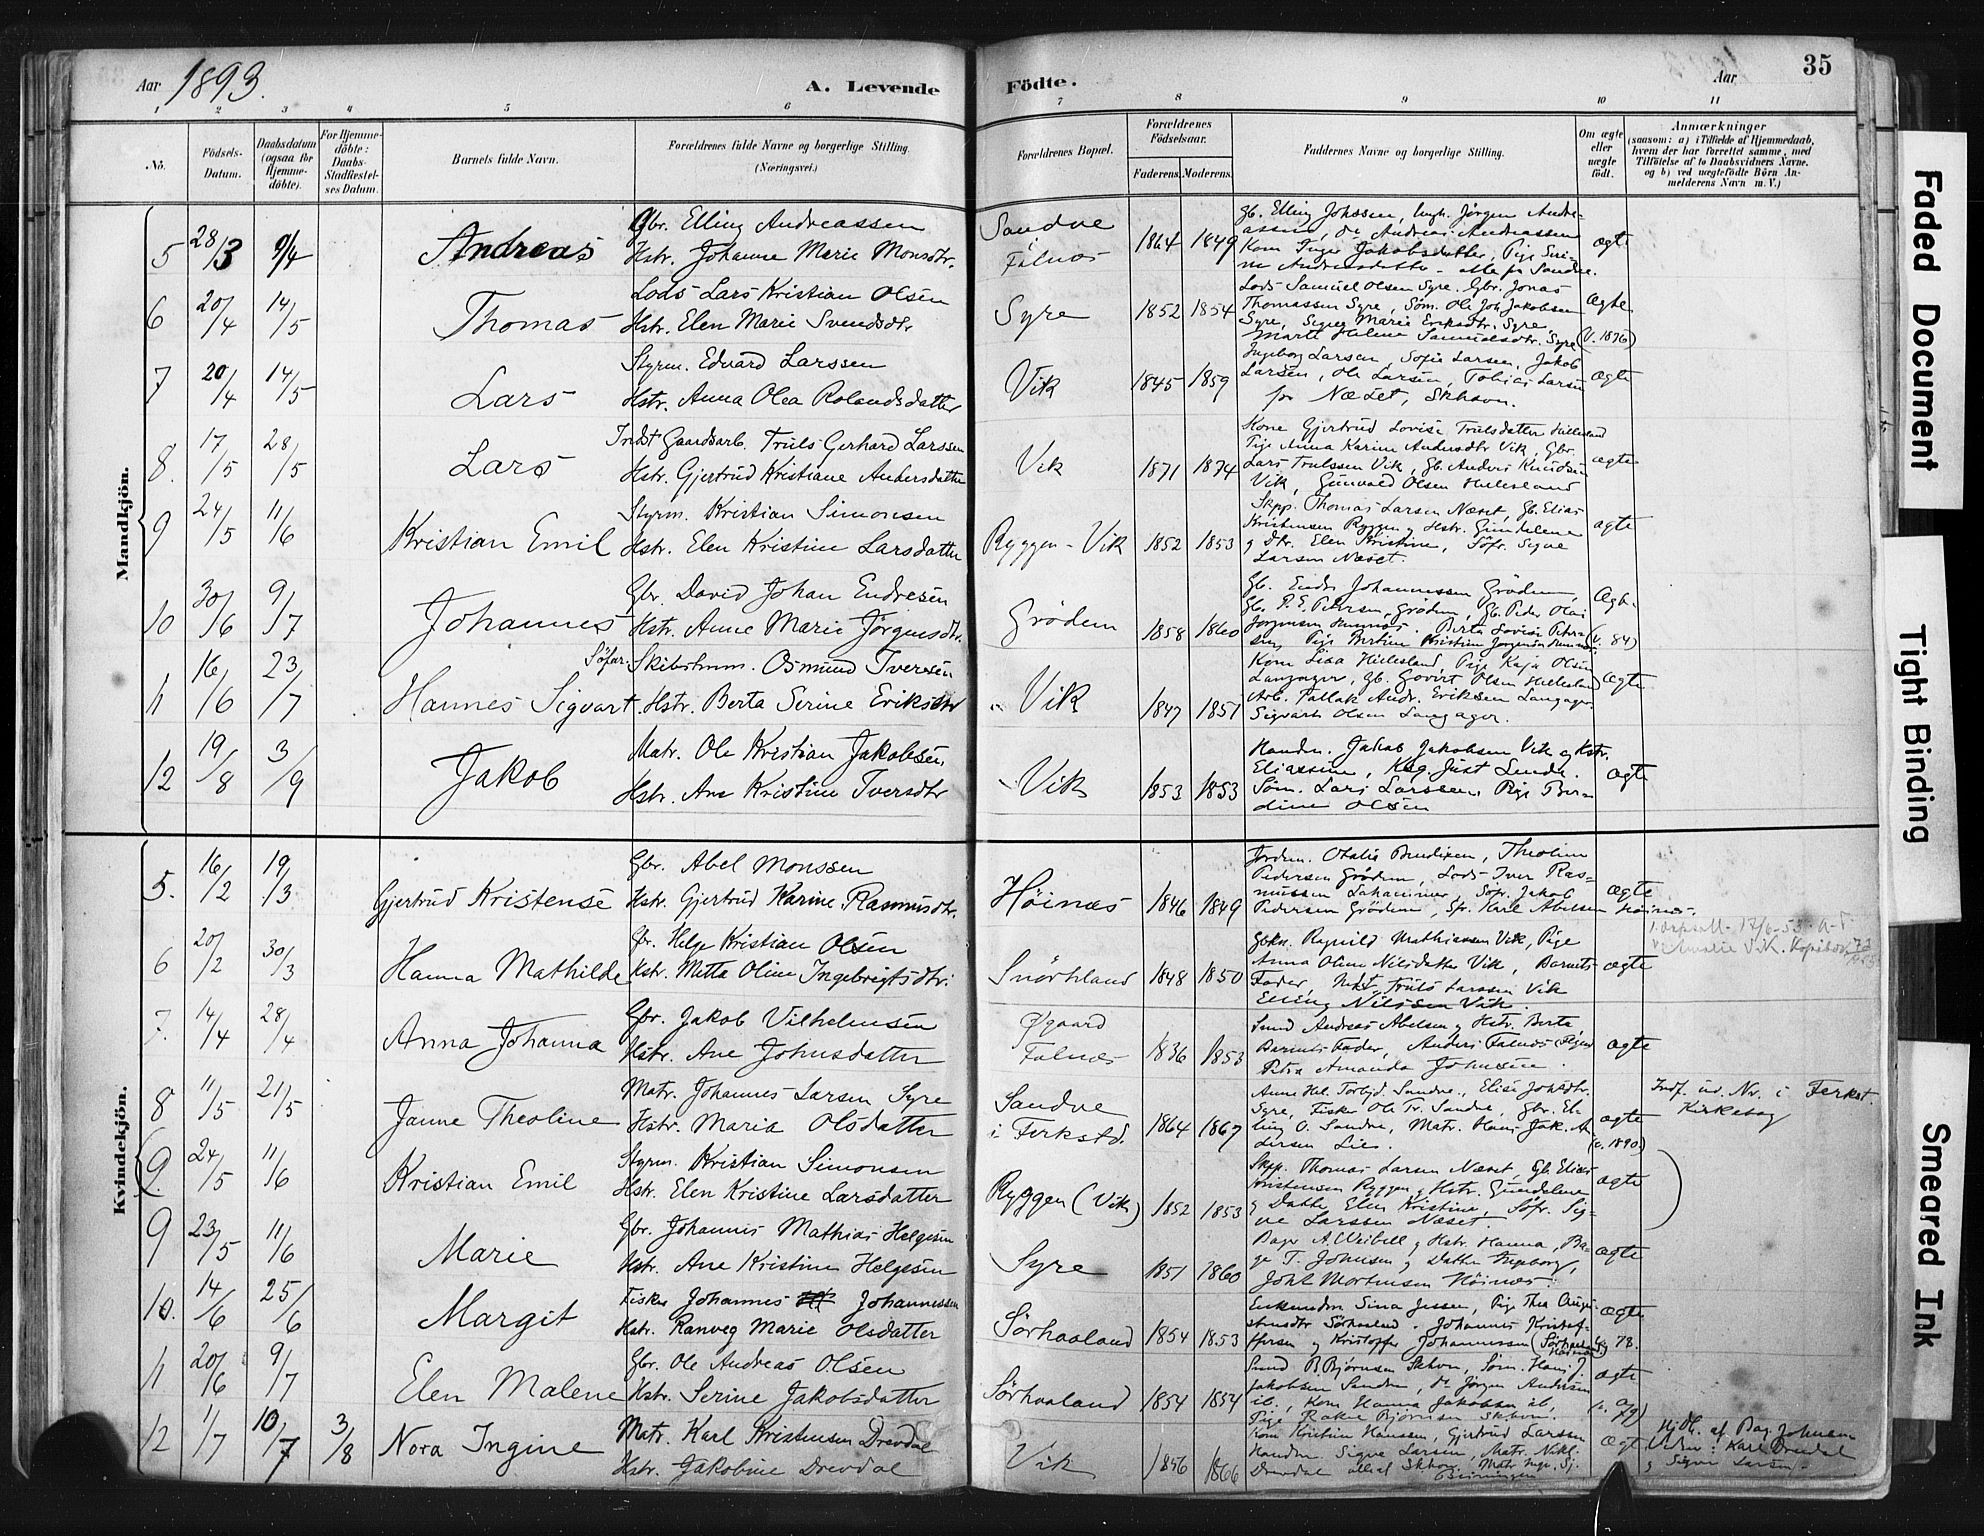 Aar 1893.
A. Levende Födte.
Aar
35
1 2 3 4 5 6 7 8 9 10 11
No.
Födsels-Datum.
Daabsdatum (ogsaa for Hjemme-döbte).
For Hjemme-döbte: Daabs-Stadfæstel-ses Datum.
Barnets fulde Navn.
Forældrenes fulde Navne og borgerlige Stilling.
(Næringsvei.)
Forældrenes Bopæl.
Forældrenes Födselsaar.
Faderens. Moderens.
Faddernes Navne og borgerlige Stilling.
Om ægte eller uægte født.
Anmærkninger
(saasom: a) i Tilfælde af Hjemmedaab, hvem der har forrettet samme, med Tilföielse af to Daabsvidners Navne, og b) ved uægtefödte Börn An-melderens Navn m. V.)
Mandkjön.
5 28/3 9/4 Andreas
Gbr. Elling Andreassen
Hstr. Johanne Marie Monsdtr.
Sandve Falnæs 1864 1849
ægte
6 20/4 14/5 Thomas
Lods Lars Kristian Olsen
Hstr. Elen Marie Svendsdtr
Syre 1852 1854
Lods Samuel Olsen Syre, Gbr. Jonas
Thomassen Syre, Søm. Ole Joh. Jakobsen
Syre, Marie Eriksdtr. Syre
Marte Helene Samuelsdtr. Syre
ægte (v. 1876)
7 20/4 14/5 Lars
Styrm. Edvard Larssen
Hstr. Anna Olea Rolandsdatter
Vik 1845 1859
Ingeborg Larsen, Sofie Larsen, Jakob
Larsen, Ole Larsen, Tobias Larsen
Næset, Skhavn.
ægte
8. 17/5 28/5 Lars
Indst Gaardsarb. Truls Gerhard Larssen
Hstr. Gjertrud Kristiane Andersdatter
Vik 1871 1874
Kone Gjertrud Lovise Trulsdatter Hillesland
Pige Anna Karine Andersdtr Vik, Gbr.
Lars Trulssen Vik, Gb. Anders Knudsen
Vik, Gunvald Olsen Hillesland
ægte
9 24/5 11/6 Kristian Emil
Styrm. Kristian Simonsen
Hstr. Elen Kristine Larsdatter
Ryggen - Vik 1852 1853
Skpp. Thomas Larsen Næset, Gb. Elias
Kristensen Ryggen og Hstr. Gundelene
og dtr. Elen Kristine, Söfr. Signe
Larsen Næset.
ægte
10 30/6 9/7 Johannes
Gbr. David Johan Endresen
Hstr. Anne Marie Jörgensdtr.
Grödem 1858 1860
Gb. Endr. Johannessen Grödem,
Gb. P. E. Petersen Grödem, Gb. Peder Olai
(v. 84)
11 16/6 23/7 Hannes Sigvart
Söfar. Skibstmm. Osmund Iversen
Hstr. Berta Serine Eriksdtr
Vik 1847 1851
Kone Lisa Hillesland, Pige Kaja Olsen
Langager, Gb. Govert Olsen Hillesland
Arb. Tallak Andr. Eriksen Langager
Sigvart Olsen Langager.
ægte
12 19/8 3/9 Jakob
Matr. Ole Kristian Jakobsen
Hstr. Ane Kristine Iversdtr
Vik 1853 1853
Handm. Jakob Jakobsen Vik og Hstr.
Eliassine, Just Lunde.
Søm. Lars Larssen, Pige Ber-
dine Olsen
ægte
Kvindekjön.
5. 16/2 19/3 Gjertrud Kristense
Gbr. Abel Monssen
Hstr. Gjertrud Karine Rasmusdtr.
Höinæs 1846 1849
Jordm. Otalie Bendixen, Theoline
Pedersen Grödem, Lods Iver Ras-
mussen, Söfr. Jakob
Pedersen Grödem, Karl Abelsen Höinæs.
ægte
6 20/2 30/3 Hanna Mathilde
Gbr. Helge Kristian Olsen
Hstr. Metta Oline Ingebrigtsdtr.
Snörteland 1848 1850
Ragnild Mathiassen Vik, Pige
Anna Oline Nilsdatter Vik, Barnets
Fader, Indst. Truls Larssen Vik
Elling Nilssen Vik
ægte
7. 14/4 28/4 Anna Johanna
Gbr. Jakob Vilhelmsen
Hstr. Ane Johnsdatter
Øgaard Falnæs 1836 1853
Smed Andreas Abelsen og Hstr. Berta,
Barnets Fader, Anders Falnæs
Petra Amanda Johnsen.
ægte
8 11/5 21/5 Janne Theoline
Matr. Johannes Larsen Syre
Hstr. Maria Olsdatter
Sandve i Ferkstd. 1864 1867
Anne Hel. Torbj. Sandve, Elise Johsdtr.
Syre, Fisker Ole Tr. Sandve, Gbr. El-
ling O. Sandve, Matr. Hans Jak. An-
dersen Lie.
ægte (v. 1890)
Indf. ud. Nr. i Ferkst. Kirkebog
(9. 24/5 11/6 Kristian Emil
Styrm. Kristian Simonsen
Hstr. Elen Kristine Larsdatter
Ryggen (Vik) 1852 1853
Skpp. Thomas Larsen Næset, Gb. Elias
Kristensen Ryggen og Hstr. Gundelene
og Datter Elen Kristine, Söfr. Sig-
ne Larssen Næset.
ægte )
9 23/5 11/6 Marie
Gbr. Johannes Mathias Helgesen
Hstr. Ane Kristine Helgesen
Syre 1851 1860
Bager A. Weibell og Hstr. Hanna, Ba-
ger T. Johnsen og Datter Ingeborg,
Johs Mortensen Höinæs.
ægte
10. 14/6 25/6 Margit
Fisker Johannes Johannessen
Hstr. Ranveg Marie Olsdatter
Sörhaaland 1854 1853
Enkemadm Sina Jessen, Pige Thea Augu-
stinsdtr Sörhaaland, Johannes Kristof-
fersen og Kristoffer Johannessen
ægte 78.
11 20/6 9/7 Elen Malene
Gbr. Ole Andreas Olsen
Hstr. Serine Jakobsdatter
Sörhaaland 1854 1854
Smed B. Björnsen Skhvn, Søm. Hans J.
Jakobsen Sandve, do Jörgen Andersen
ib., Kone Hanna Jakobsen ib,
Pige Rakel Björnsen Skhvn.
ægte
12 1/7 10/7 3/8 Nora Ingine
Matr. Karl Kristensen Drevdal
Hstr. Jakobine Drevdal
Vik 1846 1866
Kone Kristine Hanssen, Gjertrud Larssen
Handm. Signe Larsen, Matr. Nikl.
Drevdal alle af Skhvn,
ægte
Hjdb. af Bag. Johnsen
Vidn: Karl Drevdal
og Signe Larsen
Faded Document
Tight Binding
Smeared Ink